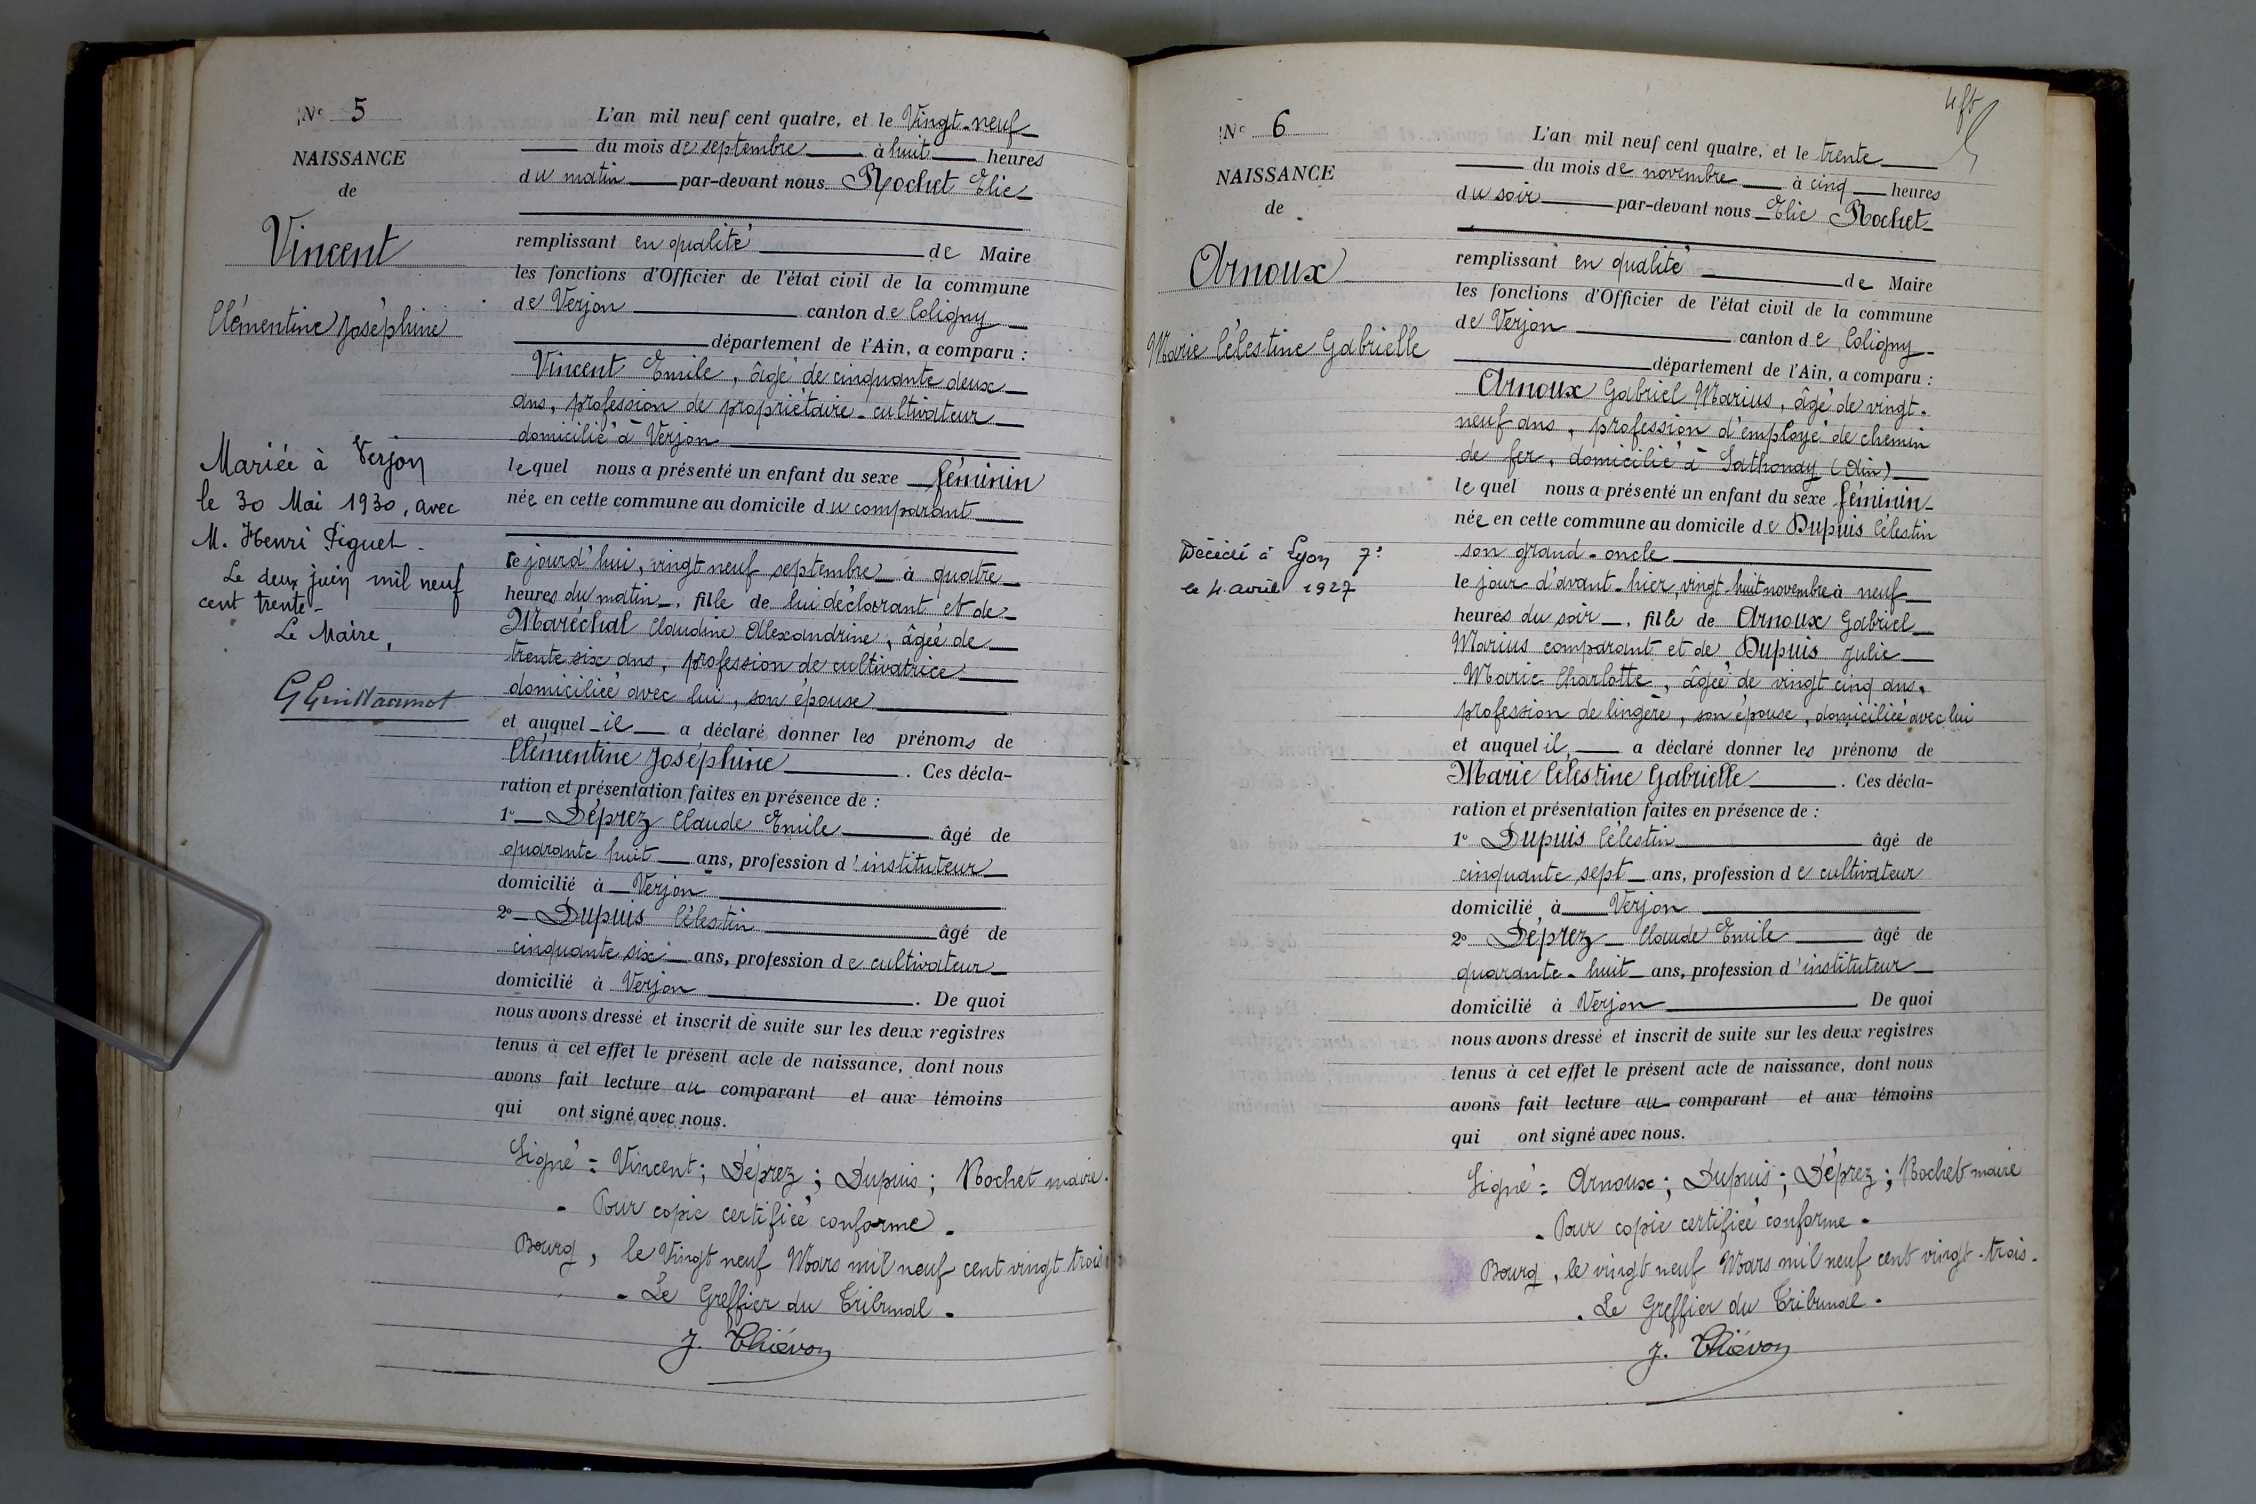 Nº 5
NAISSANCE
de
Vincent
Clémentine Joséphine
Mariée à Verjon
le 30 Mai 1930, avec
M. Henri Piguet.
Le deux juin mil neuf
cent trente-
Le Maire,
L'an mil neuf cent quatre, et le Vingt-neuf
du mois de septembre à huit heures
du matin par-devant nous Rochet Elie
remplissant en qualité de Maire
les fonctions d'Officier de l'état civil de la commune
de Verjon canton de Coligny
département de l'Ain, a comparu :
Vincent Emile, âgé de cinquante deux
ans, profession de propriétaire-cultivateur
domicilié à Verjon
lequel nous a présenté un enfant du sexe féminin
née en cette commune au domicile du comparant
ce jourd'hui, vingt neuf septembre à quatre
heures du matin, fille de lui déclarant et de
Maréchal Claudine Alexandrine, âgée de
trente six ans, profession de cultivatrice
domiciliée avec lui, son épouse
et auquel il a déclaré donner les prénoms de
Clémentine Joséphine. Ces décla-
ration et présentation faites en présence de :
1º Déprez Claude Emile âgé de
quarante huit ans, profession d'instituteur
domicilié à Verjon
2º Dupuis Célestin âgé de
cinquante six ans, profession de cultivateur
domicilié à Verjon. De quoi
nous avons dressé et inscrit de suite sur les deux registres
tenus à cet effet le présent acte de naissance, dont nous
avons fait lecture au comparant et aux témoins
qui ont signé avec nous.
Signé : Vincent ; Déprez ; Dupuis ; Rochet maire.
- Pour copie certifiée conforme -
Bourg, le Vingt neuf Mars mil neuf cent vingt trois
- Le Greffier du Tribunal -
J. Thiévon
Nº 6
NAISSANCE
de
Arnoux
Marie Célestine Gabrielle
Décédé à Lyon 7e
le 4 avril 1927
L'an mil neuf cent quatre, et le trente
du mois de novembre à cinq heures
du soir par-devant nous Elie Rochet
remplissant en qualité de Maire
les fonctions d'Officier de l'état civil de la commune
de Verjon canton de Coligny
département de l'Ain, a comparu :
Arnoux Gabriel Marius, âgé de vingt-
neuf ans, profession d'employé de chemin
de fer, domicilié à Sathonay (Ain)
lequel nous a présenté un enfant du sexe féminin
née en cette commune au domicile de Dupuis Célestin
son grand-oncle
le jour d'avant-hier, vingt-huit novembre à neuf
heures du soir, fille de Arnoux Gabriel
Marius comparant et de Dupuis Julie
Marie Charlotte, âgée de vingt cinq ans,
profession de lingère, son épouse, domiciliée avec lui
et auquel il a déclaré donner les prénoms de
Marie Célestine Gabrielle. Ces décla-
ration et présentation faites en présence de :
1º Dupuis Célestin âgé de
cinquante sept ans, profession de cultivateur
domicilié à Verjon
2º Déprez Claude Emile âgé de
quarante-huit ans, profession d'instituteur
domicilié à Verjon De quoi
nous avons dressé et inscrit de suite sur les deux registres
tenus à cet effet le présent acte de naissance, dont nous
avons fait lecture au comparant et aux témoins
qui ont signé avec nous.
Signé : Arnoux ; Dupuis ; Déprez ; Rochet maire
- Pour copie certifiée conforme -
Bourg, le vingt neuf Mars mil neuf cent vingt-trois.
- Le Greffier du Tribunal -
J. Thiévon